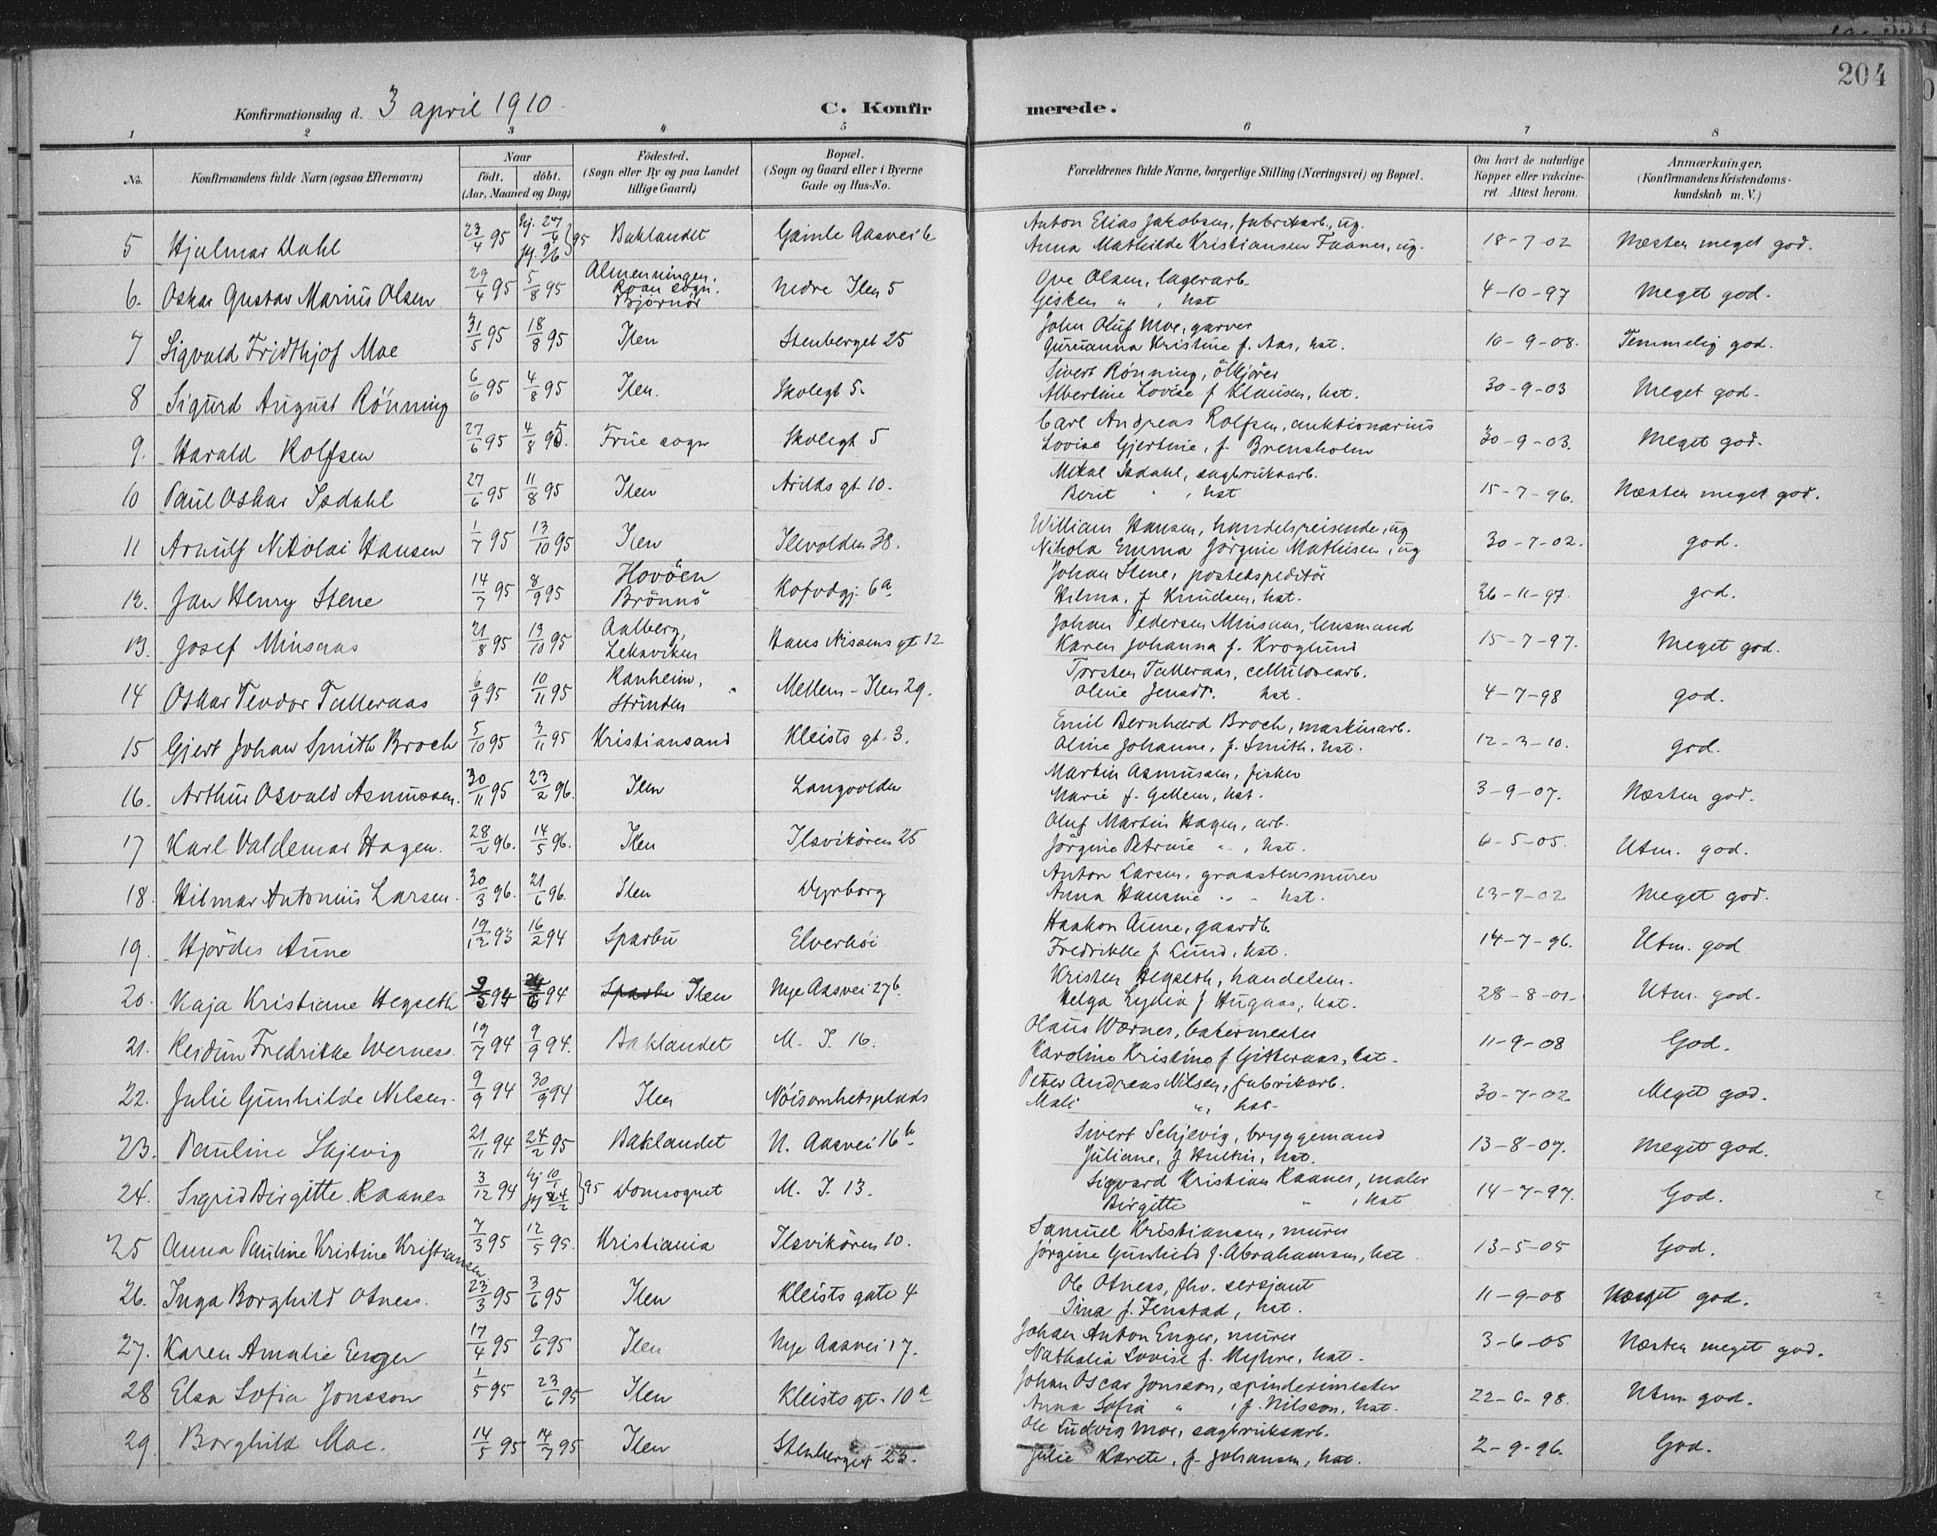 204
Konfirmationsdag d. 3 april 1910
C. Konfirmerede.
1 2 3 4 5 6 7 8
No.
Konfirmandens fulde Navn (ogsaa Efternavn)
Naar
födt. döbt.
(Aar, Maaned og Dag)
Födested.
(Sogn eller By og paa Landet tillige Gaard)
Bopæl.
(Sogn og Gaard eller i Byerne Gade og Hus-No.
Forældrenes fulde Navne, borgerlige Stilling (Næringsvei) og Bopæl.
Om havt de naturlige Kopper eller vakcineret. Attest herom.
Anmærkninger.
(Konfirmandens Kristendomskundskab m. V.)
5 Hjalmar Dahl 23/4 95 Hj. 27/4 95 Baklandet Gamle Aasvei 6
Anton Elias Jakobsen, fabrikarb., ug.
Anna Mathilde Kristiansen Faanes, ug. 18-7-02 Næsten meget god.
6. Oskar Gustav Marius Olsen 29/4 95 5/8 95 Almenningen, Roan sogn. Bjørnör Nedre Ilen 5
Ove Olsen, lagerarb.
Gisken " , hst 4-10-97 Meget god.
7 Sigvald Fridthjof Moe 31/5 95 18/8 95 Ilen Stenberget 25
John Oluf Moe, garver
Guruanna Kristine f. Aas, hst. 10-9-08. Temmelig god.
8 Sigurd August Rönning 6/6 95 4/8 95 Ilen. Skolegt 5.
Sivert Rönning, ölkjörer
Albertine Lovise f Klausen, hst. 30-9-03 Meget god.
9. Harald Rolfsen 27/6 95 4/8 95. Frue sogn Skolegt 5
Carl Andreas Rolfsen, auktionarius
Lovise Gjertine, f. Brensholm 30-9-03. Meget god.
10 Paul Oskar Isdahl 27/6 95 11/8 95 Ilen Arilds gt. 10.
Mikal Isdahl, sagbruksarb.
Berit " , hst 15-7-96. Næsten meget god.
11 Arnulf Nikolai Hansen 1/7 95 13/10 95 Ilen Ilevolden 38.
William Hansen, handelsreisende, ug
Nikola Emma Jörgine Mathisen, ug 30-7-02. god.
12. Jan Henry Stene 14/7 95 8/9 95 Hovöen Brönnö Kofodgj. 6a
Johan Stene, postekspeditör
Hilma, f Knudsen, hst. 26-11-97. god.
13. Josef Minsaas 21/8 95 13/10 95 Aalberg, Leksviken Hans Nissens gt 12
Johan Pedersen Minsaas, husmand
Karen Johanna f. Kroglund 15-7-97. Meget god.
14 Oskar Teodor Talleraas 6/9 95 10/11 95 Ranheim, Strinden Mellem-Ilen 29.
Torsten Talleraas, cellulosearb.
Oline Jensdr. hst. 4-7-98 god.
15 Gjert Johan Smith Broch 5/10 95 3/11 95 Kristiansand Kleists gt. 3.
Emil Bernhard Broch, maskinarb.
Oline Johanne, f. Smith, hst. 12-3-10. god.
16. Arthur Osvald Asmussen. 30/11 95 23/2 96. Ilen Langvolden
Martin Asmussen, fisker
Marie f. Gellein, hst. 3-9-07. Næsten god.
17 Karl Valdemar Hagen. 28/2 96. 14/5 96. Ilen Ilsvikören 25
Oluf Martin Hagen, arb.
Jörgine Petrine " , hst. 6-5-05. Utm. god.
18. Hilmar Antonius Larsen. 30/3 96. 21/6 96. Ilen Vyrborg
Anton Larsen, graastensmurer
Anna Hansine " hst. 23-7-02 Meget god.
19. Hjördis Aune 19/12 93 16/2 94 Sparbu Elverhöi
Haakon Aune, gaardb.
Fredrikke f. Lund, hst. 14-7-96. Utm. god
20. Kaja Kristiane Hegseth 9/5 94 24/6 94 Sparbu Ilen Nye Aasvei 27b.
Kristen Hegseth, handelsm.
Helga Lydia f Hugaas, hst. 28-8-01. Utm. god.
21. Reidun Fredrikke Werness. 19/7 94 9/9 94. Baklandet M. I. 16.
Olaus Wærnes, bakermester
Karoline Kristine f Gitteraas, hst. 11-9-08 God.
22. Julie Gunhilde Nilsen. 9/9 94 30/9 94 Ilen Nöisomhetsplads
Peter Andreas Nilsen, fabrikarb.
Mali " , hst. 30-7-02 Meget god.
23. Pauline Skjevig 21/11 94 24/2 95 Baklandet N. Aasvei 16b
Sivert Schjevig, bryggemand
Juliane, f Hulkin, hst. 13-8-07. Meget god.
24. Sigrid Birgitte Raanes 3/12 94 hj 10/1 95 Domsognet M. I. 13.
Sigvard Kristian Raanes, maler
Birgitte " , hst 14-7-97. God.
25 Anna Pauline Kristine Kristiansen 7/3 95 12/5 95. Kristiania Ilsvikören 10.
Samuel Kristiansen, murer
Jörgine Gunhild f. Abrahamsen, hst. 13-5-05 God.
26. Inga Borghild Otness. 23/3 95 3/6 95 Ilen Kleists gate 4
Ole Otness, fhv. sersjant
Sina f. Fenstad, hst. 11-9-08 Meget god.
27. Karen Amalie Enger 17/4 95 9/6 95 Ilen Nye Aasvei 17.
Johan Anton Enger, murer
Nathalia Lovise f. Myhre, hst. 3-6-05 Næsten meget god.
28 Elsa Sofia Jonsson 1/5 95 23/6 95 Ilen Kleists gt. 10a
Johan Oscar Jonsson, spinderimester
Anna Sofia " , f. Nilsson, hst. 22-6-98. Utm. god.
29. Borghild Moe. 14/5 95 14/7 95 Ilen Stenberget 23.
Ole Ludvig Moe, sagbruksarb.
Julie Karete, f. Johansen, hst. 2-9-96. God.